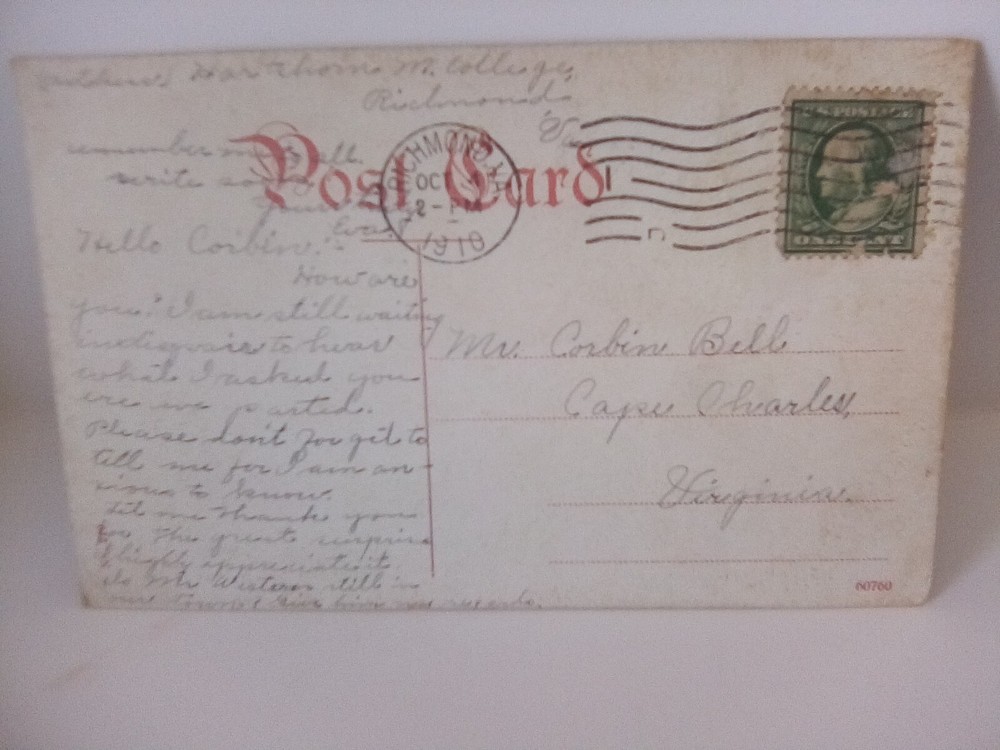 Harthorn M. College,
Richmond
Va.
remember me to all.
write soon
Yours
Eva.
Post Card
RICHMOND, VA.
OCT
2-PM
1910
U.S. POSTAGE
ONE CENT
Hello Corbin:-
How are
you? I am still waiting
to hear
what I asked you
ere we parted.
Please don't forget to
tell me for I am an-
xious to know.
Let me thank you
for the great surprise
I highly appreciate it
Is Mr still in
our town? Give him my regards.
Mr. Corbin Bell
Cape Charles,
Virginia.
60760